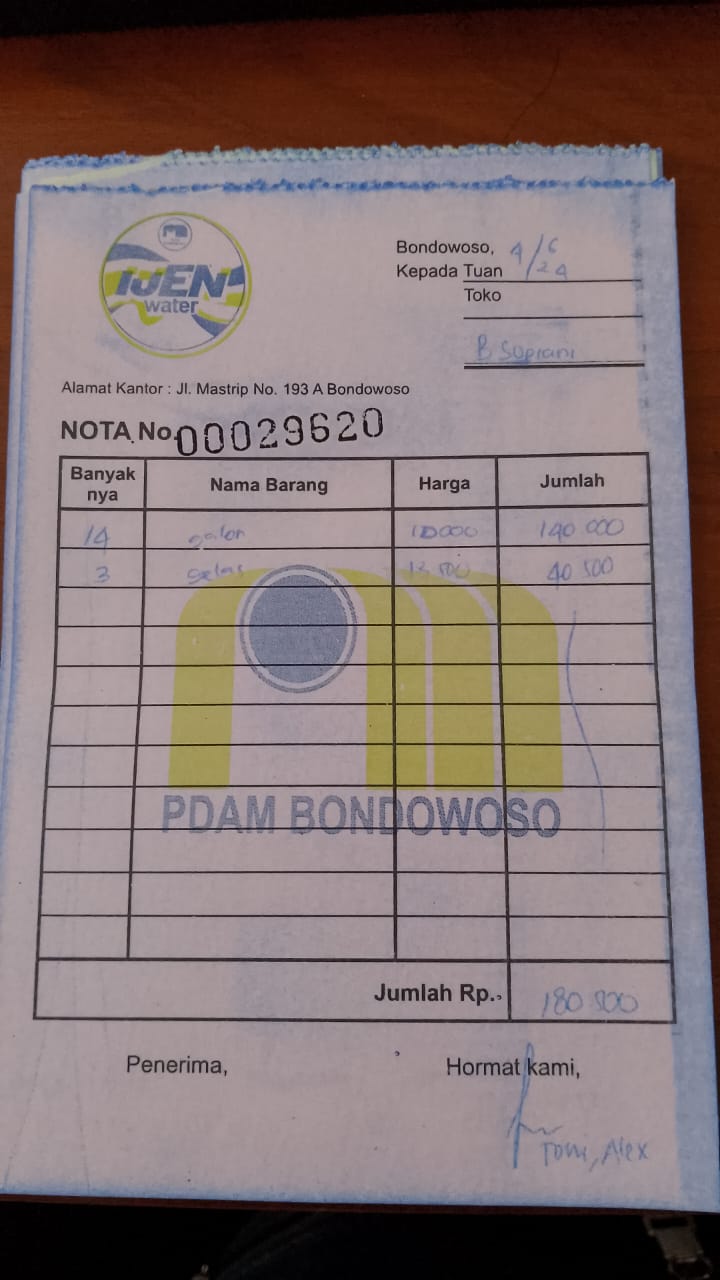 IJEN
water
Bondowoso, 4/6/24
Kepada Tuan
Toko
B Supriani
Alamat Kantor : Jl. Mastrip No. 193 A Bondowoso
NOTA No. 00029620
Banyak nya Nama Barang Harga Jumlah
14 galon 10000 140 000
3 gelas 13 500 40 500
PDAM BONDOWOSO
Jumlah Rp. 180 500
Penerima, Hormat kami,
Toni, Alex